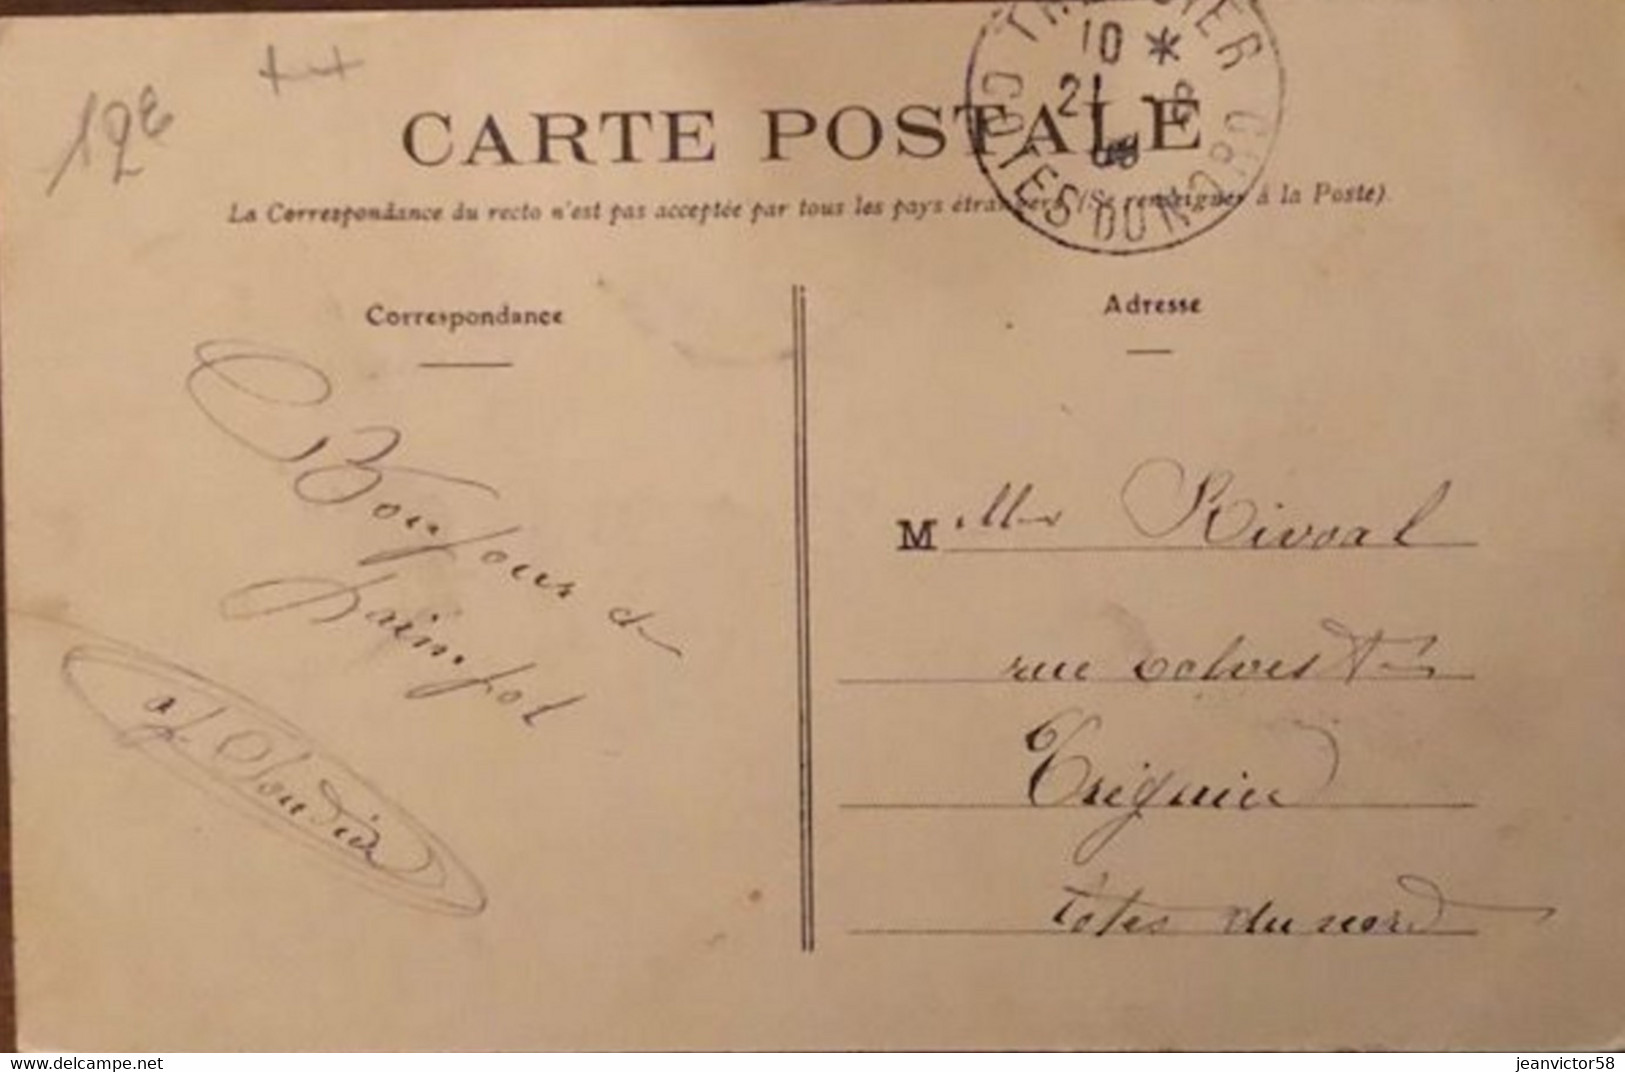 12e
TREGUIER
10 *
21
COTES DU NORD
CARTE POSTALE
La Correspondance du recto n'est pas acceptée par tous les pays étrangers (Se renseigner à la Poste).
Correspondance
Adresse
Bonjour de
Paimpol
Melle Rivoal
rue
Tréguier
Côtes du nord
www.delcampe.net
jeanvictor58